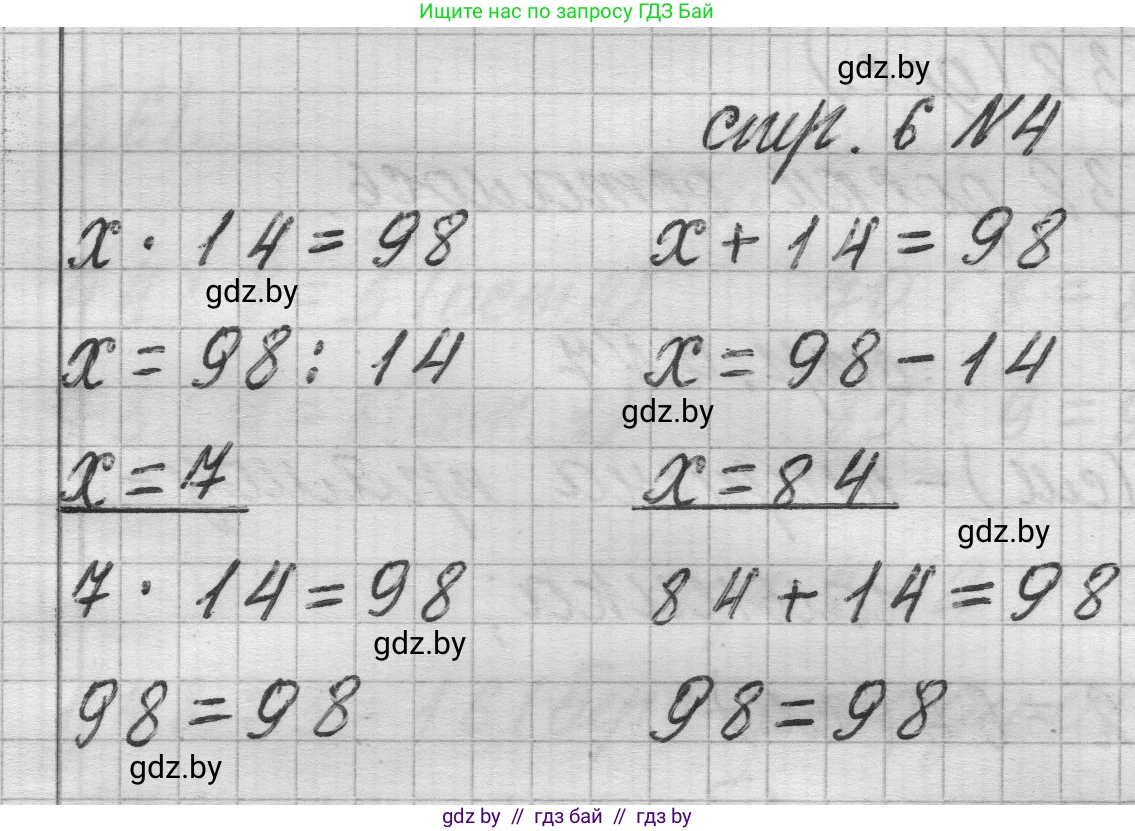 Ищите нас по запросу ГДЗ Бай
gdz.by
стр. 6 №4
x · 14 = 98
x + 14 = 98
gdz.by
x = 98 : 14
x = 98 - 14
gdz.by
x = 7
x = 84
gdz.by
7 · 14 = 98
84 + 14 = 98
gdz.by
98 = 98
98 = 98
gdz.by
gdz by // гдз бай // гдз by